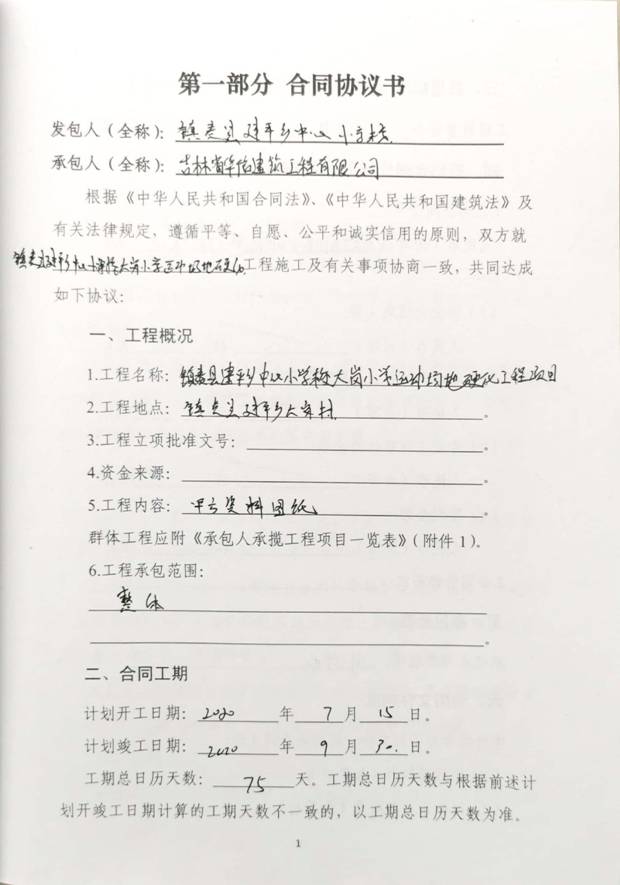 第一部分 合同协议书
发包人（全称）：镇赉县建平乡中心小学校
承包人（全称）：吉林省华信建筑工程有限公司
根据《中华人民共和国合同法》、《中华人民共和国建筑法》及
有关法律规定，遵循平等、自愿、公平和诚实信用的原则，双方就
镇赉县建平乡中心小学校大岗小学运动场地硬化工程施工及有关事项协商一致，共同达成
如下协议：
一、工程概况
1.工程名称：镇赉县建平乡中心小学校大岗小学运动场地硬化工程项目
2.工程地点：镇赉县建平乡大岗村。
3.工程立项批准文号：。
4.资金来源：。
5.工程内容：甲方资料图纸。
群体工程应附《承包人承揽工程项目一览表》（附件 1）。
6.工程承包范围：
整体
。
二、合同工期
计划开工日期：2020年7月15日。
计划竣工日期：2020年9月30日。
工期总日历天数：75天。工期总日历天数与根据前述计
划开竣工日期计算的工期天数不一致的，以工期总日历天数为准。
1